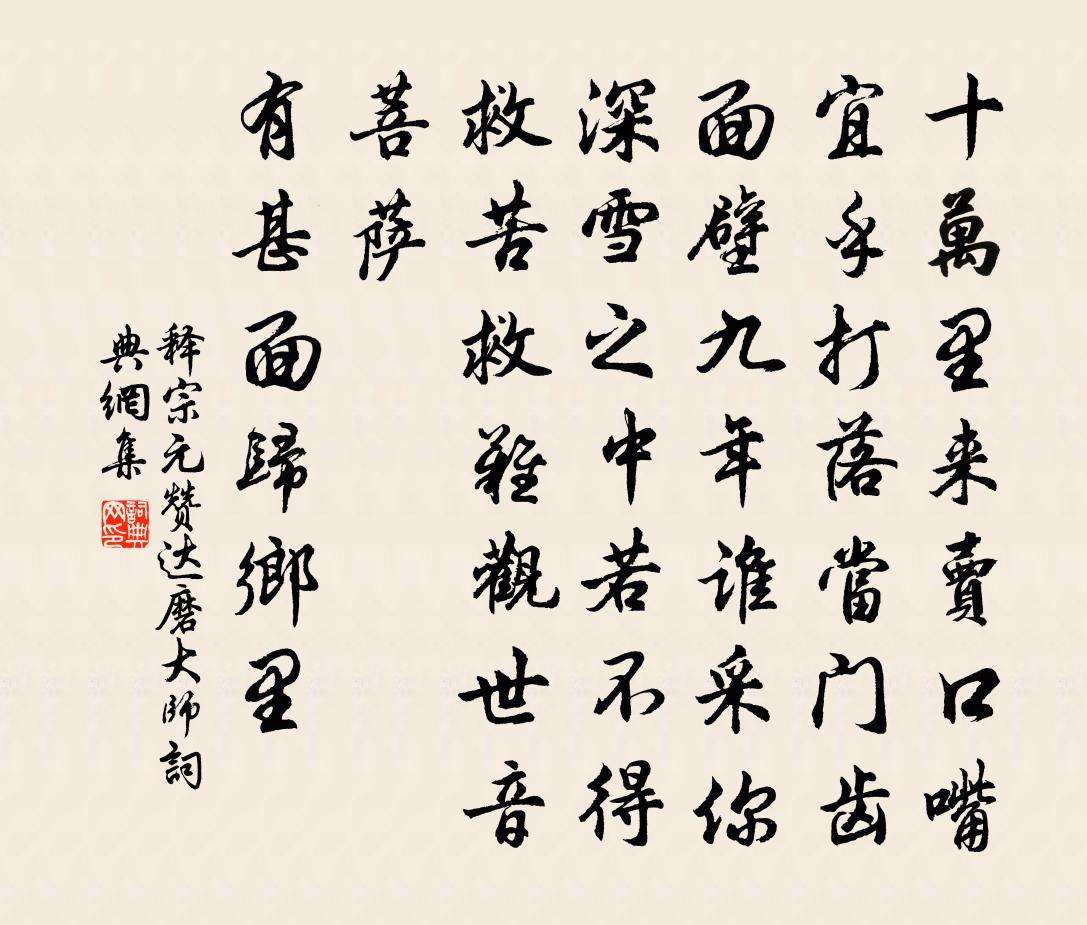 十萬里来賣口嘴
宜乎打落當门齿
面壁九年谁采你
深雪之中若不得
救苦救難觀世音
菩萨
有甚面歸鄉里
释宗元赞达磨大師詞
典網集
詞典网印